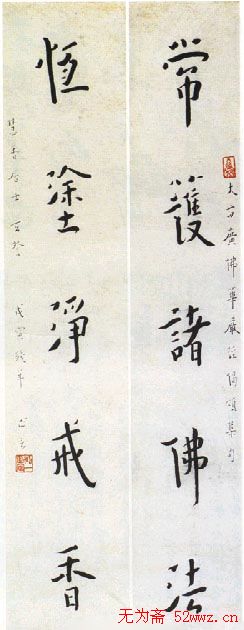 大方廣佛華嚴經偈頌集句
常護諸佛法
恆塗淨戒香
居士
戊寅殘年
无为斋 52wwz.cn